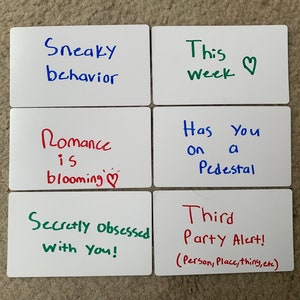 Sneaky
behavior
This
week ♡
Romance
is
blooming ♡
Has You
on a
Pedestal
Secretly Obsessed
With You!
Third
Party Alert!
(Person, Place, thing, etc)